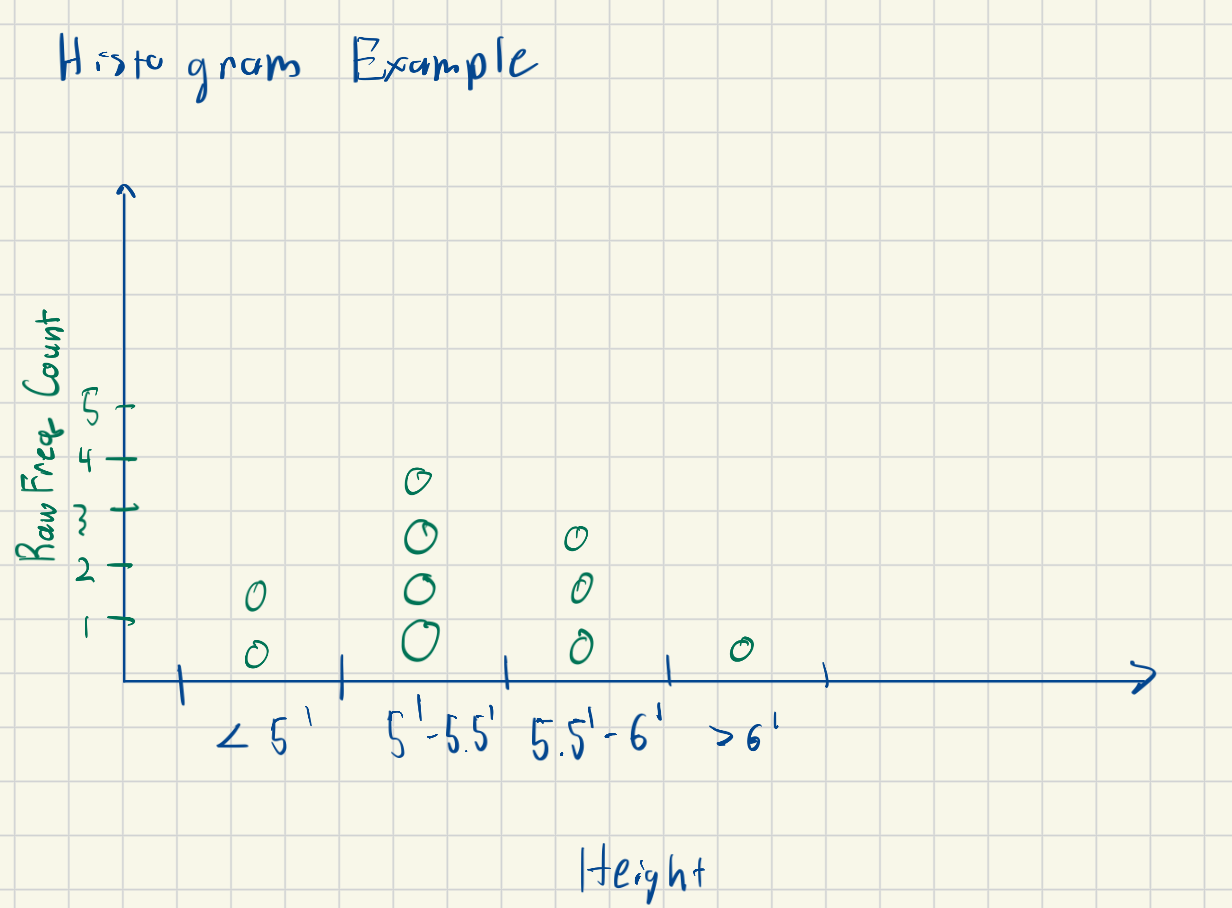 Histogram Example
Raw Freq Count
5
4
3
2
1
< 5'
5'-5.5'
5.5'-6'
>6'
Height